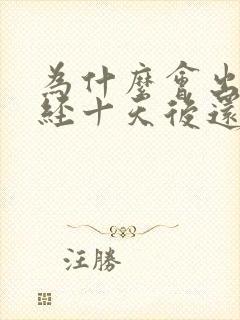 為什麼會出
經十天後還
汪勝